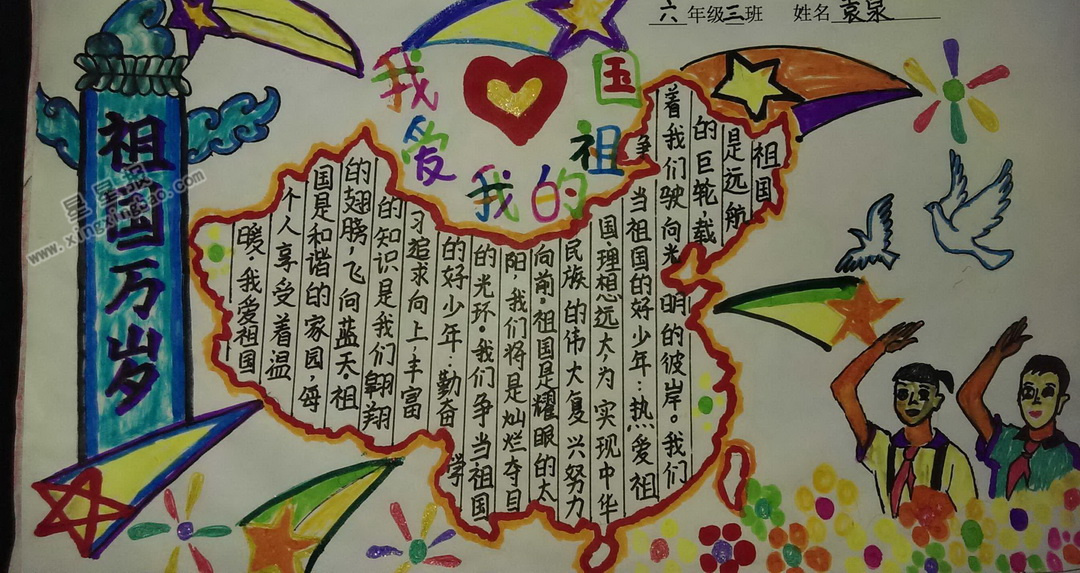 六年级三班 姓名袁泉
我爱我的祖国
祖国万岁
祖国
是远航
的巨轮,载
着我们驶向光明的彼岸。我们
争当祖国的好少年:热爱祖
国·理想远大·为实现中华
民族的伟大复兴努力
向前·祖国是耀眼的太
阳,我们将是灿烂夺目
的光环·我们争当祖国
的好少年:勤奋学
习追求向上丰富
的知识是我们翱翔
的翅膀,飞向蓝天·祖
国是和谐的家园,每
个人享受着温
暖,我爱祖国
星星报
www.xingxingbao.com